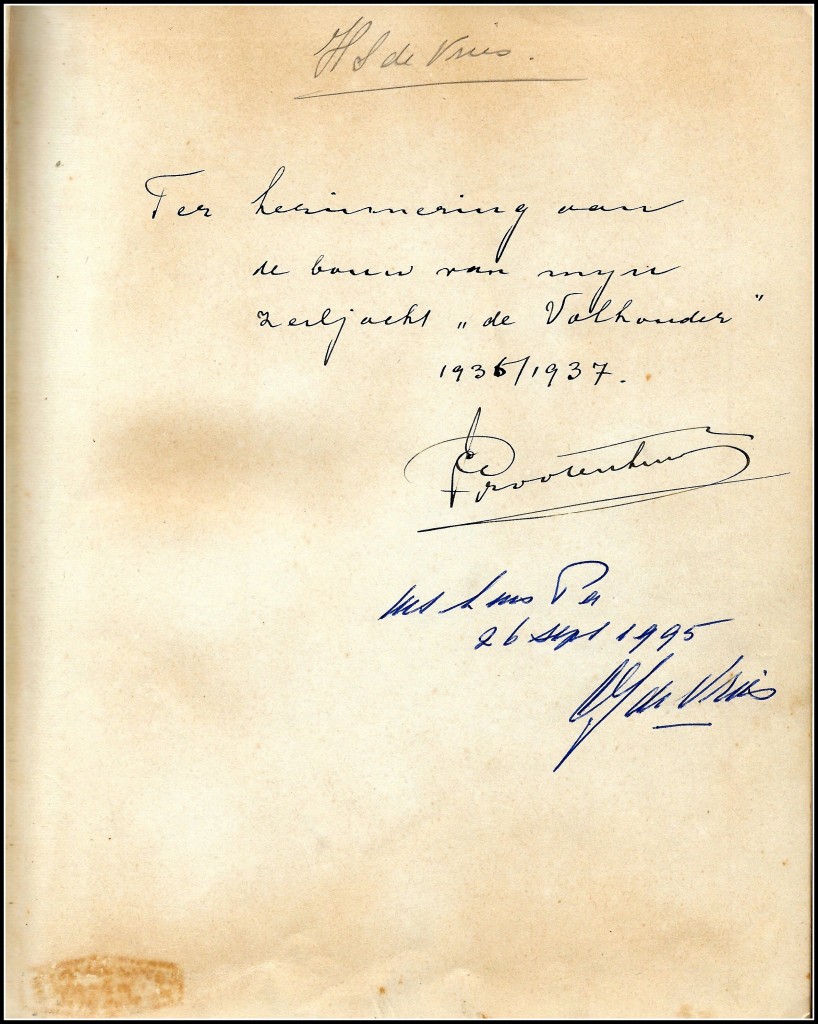 H S de Vries.
Ter herinnering aan
de bouw van mijn
zeiljacht „de Volhouder"
1936/1937.
26 sept 1995
de Vries